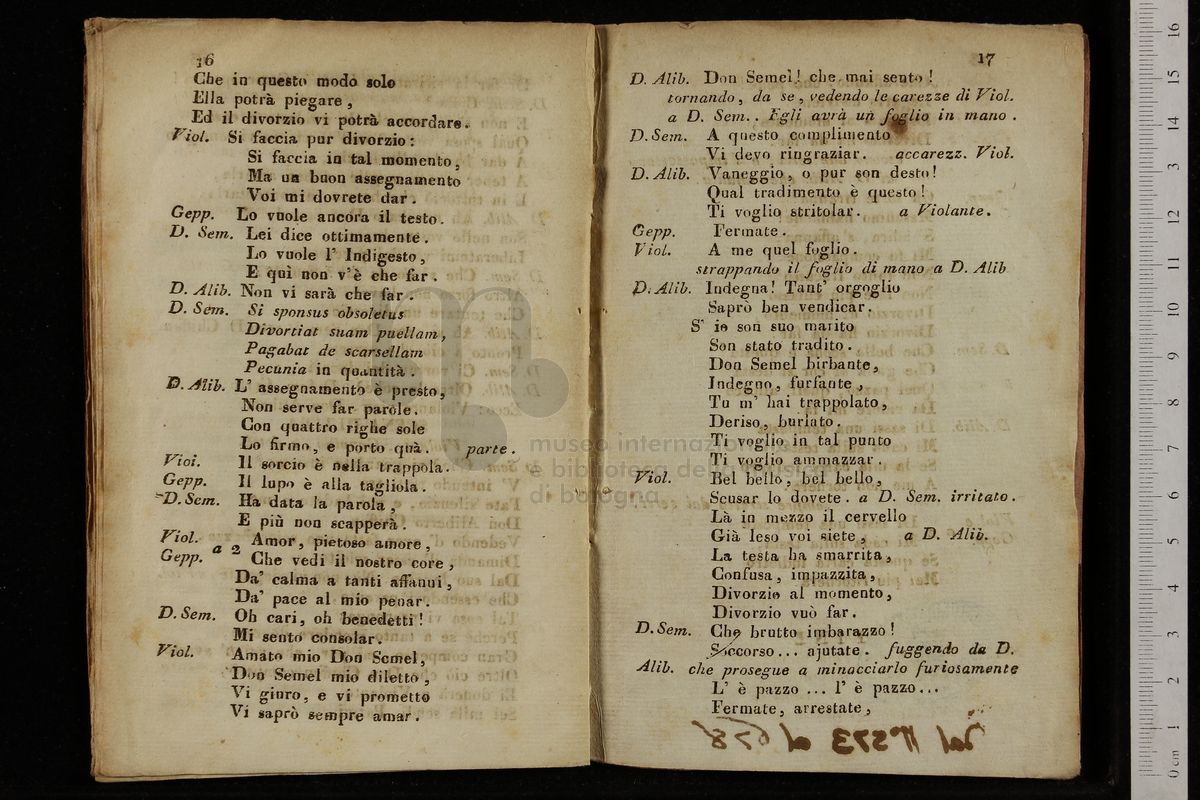 16
Che in questo modo solo
Ella potrà piegare,
Ed il divorzio vi potrà accordare.
Viol. Si faccia pur divorzio:
Si faccia in tal momento,
Ma un buon assegnamento
Voi mi dovrete dar.
Gepp. Lo vuole ancora il testo.
D. Sem. Lei dice ottimamente.
Lo vuole l' Indigesto,
E quì non v'è che far.
D. Alib. Non vi sarà che far.
D. Sem. Si sponsus obsoletus
Divortiat suam puellam,
Pagabat de scarsellam
Pecunia in quantità.
D. Alib. L' assegnamento è presto,
Non serve far parole.
Con quattro righe sole
Lo firmo, e porto quà. parte.
Viol. Il sorcio è nella trappola.
Gepp. Il lupo è alla tagliola.
D. Sem. Ha data la parola,
E più non scapperà.
Viol. a 2 Amor, pietoso amore,
Gepp. Che vedi il nostro core,
Da' calma a tanti affanni,
Da' pace al mio penar.
D. Sem. Oh cari, oh benedetti!
Mi sento consolar.
Viol. Amato mio Don Semel,
Don Semel mio diletto,
Vi giuro, e vi prometto
Vi saprò sempre amar.
17
D. Alib. Don Semel! che mai sento!
tornando, da se, vedendo le carezze di Viol.
a D. Sem.. Egli avrà un foglio in mano.
D. Sem. A questo complimento
Vi devo ringraziar. accarezz. Viol.
D. Alib. Vaneggio, o pur son desto!
Qual tradimento è questo!
Ti voglio stritolar. a Violante.
Gepp. Fermate.
Viol. A me quel foglio.
strappando il foglio di mano a D. Alib
D. Alib. Indegna! Tant' orgoglio
Saprò ben vendicar.
S' io son suo marito
Son stato tradito.
Don Semel birbante,
Indegno, furfante,
Tu m' hai trappolato,
Deriso, burlato.
Ti voglio in tal punto
Ti voglio ammazzar.
Viol. Bel bello, bel bello,
Scusar lo dovete. a D. Sem. irritato.
Là in mezzo il cervello
Già leso voi siete, a D. Alib.
La testa ha smarrita,
Confusa, impazzita,
Divorzio al momento,
Divorzio vuò far.
D. Sem. Che brutto imbarazzo!
Soccorso... ajutate. fuggendo da D.
Alib. che prosegue a minacciarlo furiosamente
L' è pazzo ... l' è pazzo...
Fermate, arrestate,
museo internazionale
e biblioteca della musica
di bologna